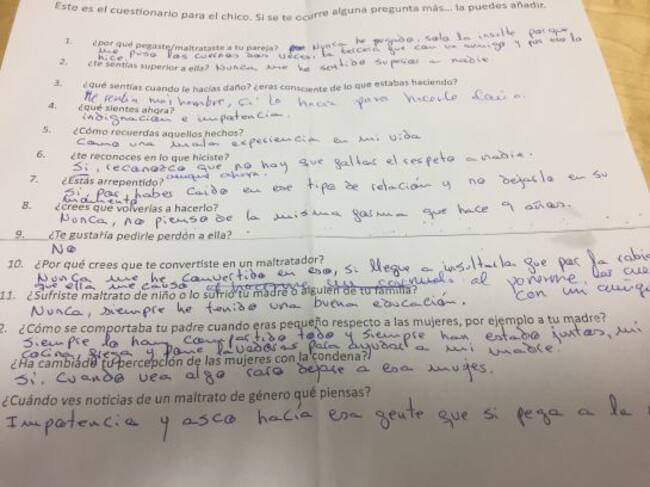 Este es el cuestionario para el chico. Si se te ocurre alguna pregunta más... la puedes añadir.
1. ¿por qué pegaste/maltrataste a tu pareja? Nunca he pegado, solo la insulte porque
me puso los cuernos dos veces, la tercera que con un amigo y por eso lo
hice.
2. ¿te sentías superior a ella? Nunca me he sentido superior a nadie
3. ¿qué sentías cuando le hacías daño? ¿eras consciente de lo que estabas haciendo?
Me sentia mas hombre, si lo hacia para hacerle daño.
4. ¿qué sientes ahora?
indignación e impotencia.
5. ¿Cómo recuerdas aquellos hechos?
Como una mala experiencia en mi vida
6. ¿te reconoces en lo que hiciste?
Si, reconozco que no hay que faltar el respeto a nadie.
7. ¿Estás arrepentido? aunque ahora.
Si, por haber caido en ese tipo de relación y no dejarlo en su
momento
8. ¿crees que volverías a hacerlo?
Nunca, no pienso de la misma forma que hace 9 años.
9. ¿Te gustaría pedirle perdón a ella?
NO
10. ¿Por qué crees que te convertiste en un maltratador?
Nunca me he convertido en eso, si llegue a insultarla que por la rabia
que ella me causo al ponerme los cue
con un amigo
11. ¿Sufriste maltrato de niño o lo sufrió tu madre o alguien de tu familia?
Nunca, siempre he tenido una buena educación.
2. ¿Cómo se comportaba tu padre cuando eras pequeño respecto a las mujeres, por ejemplo a tu madre?
Siempre lo han compartido todo y siempre han estado juntos, mi
cocina, friega y pone lavadoras para ayudar a mi madre.
¿Ha cambiado tu percepción de las mujeres con la condena?
Si. Cuando vea algo raro dejare a esa mujer.
¿Cuándo ves noticias de un maltrato de género qué piensas?
Impotencia y asco hacia esa gente que si pega a la